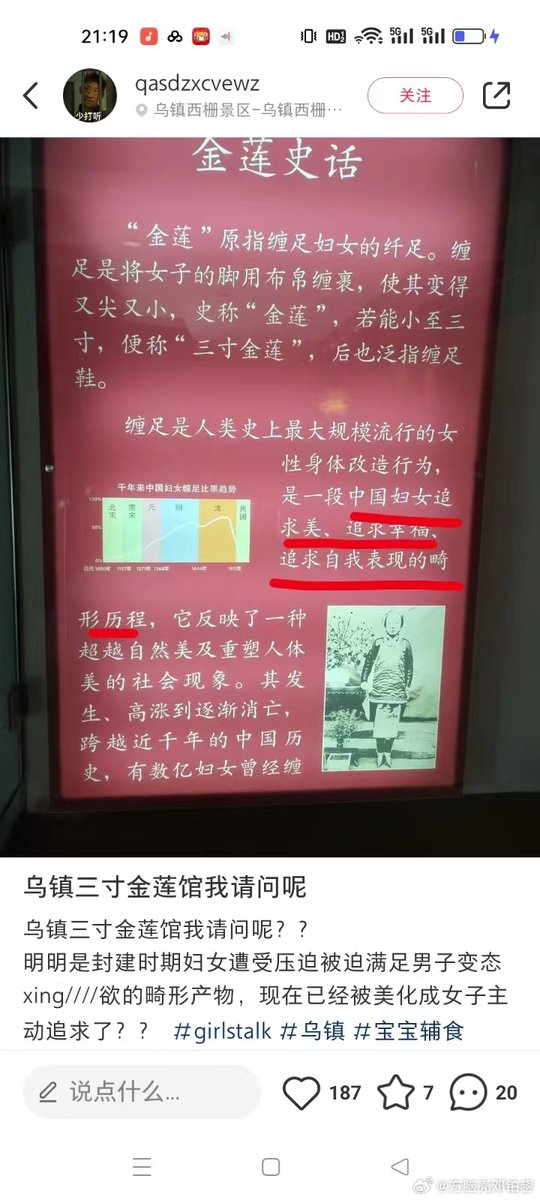 21:19
HD
5G
5G
qasdzxcvewz
少打听
乌镇西栅景区-乌镇西栅…
关注
金莲史话
“金莲”原指缠足妇女的纤足。缠
足是将女子的脚用布帛缠裹,使其变得
又尖又小,史称“金莲”,若能小至三
寸,便称“三寸金莲”,后也泛指缠足
鞋。
缠足是人类史上最大规模流行的女
性身体改造行为,
是一段中国妇女追
求美、追求幸福、
追求自我表现的畸
千年来中国妇女缠足比率趋势
100%
50%
0%
北宋
南宋
元
明
清
民国
公元1000年
1127年
1271年
1368年
1644年
1911年
形历程,它反映了一种
超越自然美及重塑人体
美的社会现象。其发
生、高涨到逐渐消亡,
跨越近千年的中国历
史,有数亿妇女曾经缠
乌镇三寸金莲馆我请问呢
乌镇三寸金莲馆我请问呢??
明明是封建时期妇女遭受压迫被迫满足男子变态
xing////欲的畸形产物,现在已经被美化成女子主
动追求了?? #girlstalk #乌镇 #宝宝辅食
说点什么...
187
7
20